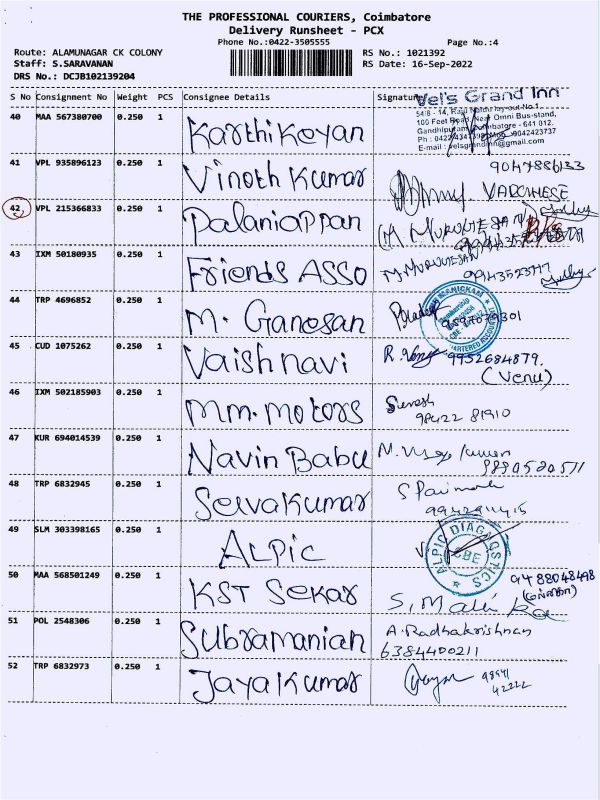 THE PROFESSIONAL COURIERS, Coimbatore
Delivery Runsheet - PCX
Phone No.:0422-3505555 Page No.:4
Route: ALAMUNAGAR CK COLONY RS No.: 1021392
Staff: S.SARAVANAN RS Date: 16-Sep-2022
DRS No.: DCJB102139204
S No Consignment No Weight PCS Consignee Details Signature
Vel's Grand Inn
100 Feet Road, Near Omni Bus-stand,
Gandhipuram, Coimbatore - 641 012.
E-mail : velsgrandinn@gmail.com
40 MAA 567380700 0.250 1 Karthikeyan
41 VPL 935896123 0.250 1 Vinoth Kumar 9047886133
42 VPL 215366833 0.250 1 Palaniappan M MURUGESAN
43 IXM 50180935 0.250 1 Friends ASSO M MURUGESAN
44 TRP 4696852 0.250 1 M. Ganesan
45 CUD 1075262 0.250 1 Vaishnavi 9952684879.
(Venu)
46 IXM 502185903 0.250 1 Mm. Motors Suresh
98422 81910
47 KUR 694014539 0.250 1 Navin Babu
48 TRP 6832945 0.250 1 Selvakumar
49 SLM 303398165 0.250 1 ALPIC ALPIC DIAGNOSTICS
CBE
50 MAA 568501249 0.250 1 KST Sekar 9488048498
51 POL 2548306 0.250 1 Subramanian A. Radhakrishnan
6384400211
52 TRP 6832973 0.250 1 Jayakumar 98941
42222